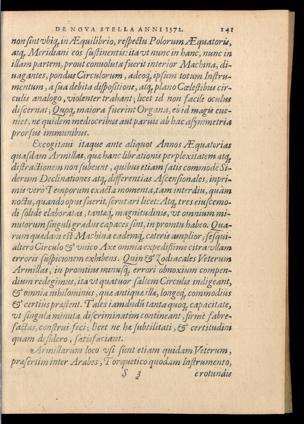 DE NOVA STELLA ANNI 1572. 141
non sint vbiq, in Æquilibrio, respectu Polorum Æquatoris,
atq, Meridiani eos sustinentis: ita vt nunc in hanc, nunc in
illam partem, prout conuoluta fuerit interior Machina, di-
uagantes, pondus Circulorum, adeoq, ipsum totum Instru-
mentum, a sua debita dispositione, atq, plano Cælestibus cir-
culis analogo, violenter trahant; licet id non facile oculus
discernat: Quoq, maiora fuerint Organa, eò id magis eue-
niet, ne quidem mediocribus aut paruis ab hac asymmetria
prorsus immunibus.
Excogitaui itaque ante aliquot Annos Æquatorias
quasdam Armillas, quæ hanc librationis perplexitatem atq,
distractionem non subeunt, quibus etiam satis commodè Si-
derum Declinationes atq, differentias Ascensionales, inpri-
mis verò Temporum exacta momenta, tam interdiu, quàm
noctu, quando opus fuerit, scrutari licet: Atq, tres eiuscemo-
di solidè elaboratas, tantæq, magnitudinis, vt omnium mi-
nutorum singuli gradus capaces sint, in promtu habeo. Qua-
rum quædam est Machina eademq, cæteris amplior, sesqui-
altero Circulo & vnico Axe omnia expeditissimè citra vllam
erroris suspicionem exhibens. Quin & Zodiacales Veterum
Armillas, in prontius minusq, errori obnoxium compen-
dium redegimus, ita vt quatuor saltem Circulis indigeant,
& omnia nihilominus, quæ antiquæ illæ, longeq, commodius
& certius præstent. Tales iamdudum tanta quoq, capacitate,
vt singula minuta discriminatim contineant, firmè fabre-
factas, construi feci; licet ne hæ subtilitati, & certitudini
quam desidero, satisfaciant.
Armillarum loco vsi sunt etiam quidam Veterum,
præsertim inter Arabes, Torquetico quodam Instrumento,
S 3 è rotundis